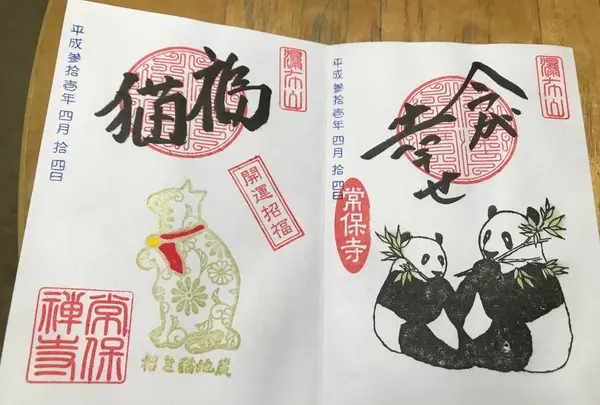 瀑布山
今が
幸せ
平成参拾壱年四月拾四日
常保寺
瀑布山
福
猫
平成参拾壱年四月拾四日
開運招福
招き猫地蔵
常保
禅寺